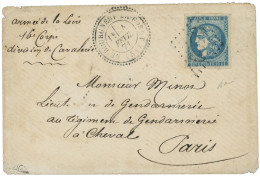 armée de la Loire
16e Corps
division de Cavalerie
Monsieur Minor
Lieutenant de Gendarmerie
au régiment de Gendarmerie
à Cheval
Paris